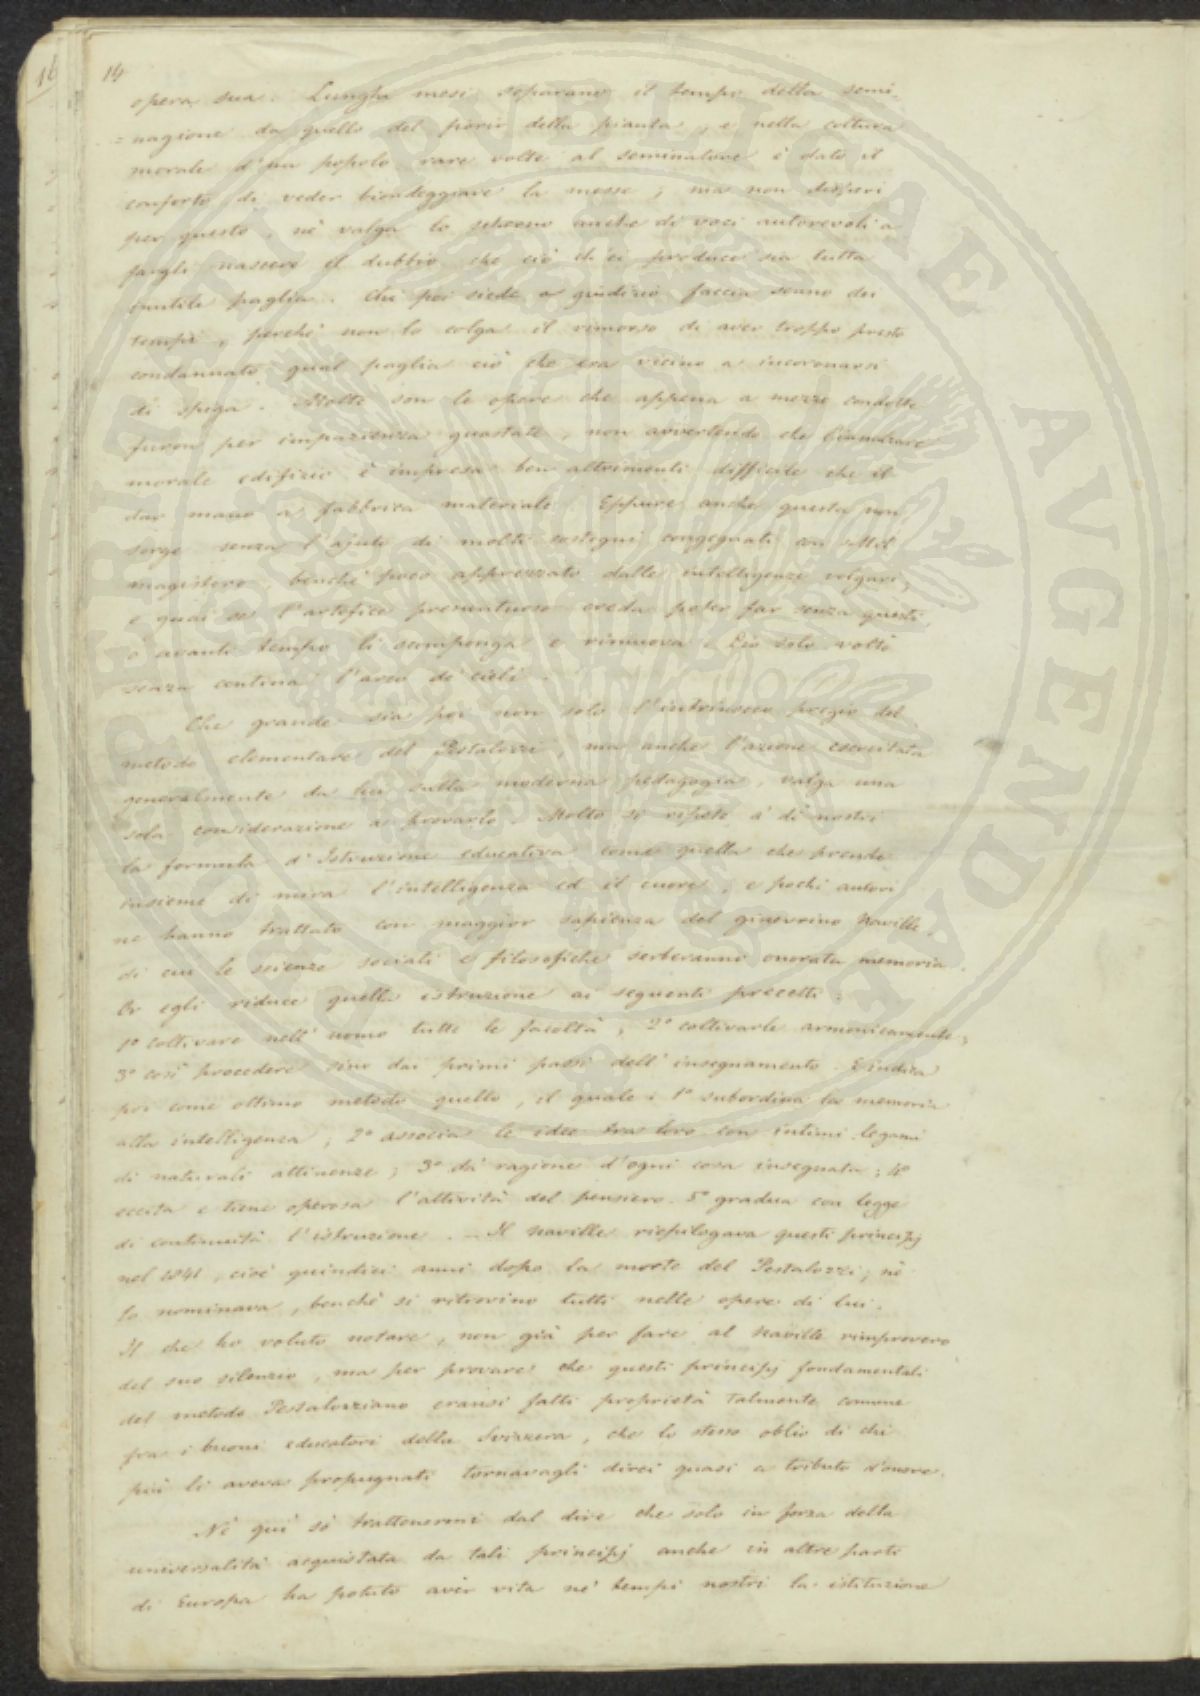 14
opera sua. Lunghi mesi separano il tempo della semi-
=nagione da quello del fiorir della pianta, e nella coltura
morale d'un popolo rare volte al seminatore è dato il
conforto di veder biondeggiare la messe; ma non disperi
per questo, nè valga lo scherno anche di voci autorevoli a
fargli nascere il dubbio che ciò ch'ei produce sia tutta
inutile paglia. Chi poi siede a giudizio faccia senno dei
tempi, perchè non lo colga il rimorso di aver troppo presto
condannato qual paglia ciò che era vicino a incoronarsi
di spiga. Molte son le opere che appena a mezzo condotte
furon per impazienza guastate, non avvertendo che l'innalzare
morale edifizio è impresa ben altrimenti difficile che il
dar mano a fabbrica materiale. Eppure anche questa non
sorge senza l'ajuto di molti sostegni congegnati con sottil
magistero, benchè poco apprezzato dalle intelligenze volgari,
e guai se l'artefice presuntuoso creda poter far senza questi,
o avanti tempo li scomponga e rimuova. Dio solo voltò
senza centina l'arco de' cieli.
Che grande sia poi non solo l'intrinseco pregio del
metodo elementare del Pestalozzi, ma anche l'azione esercitata
generalmente da lui sulla moderna pedagogia, valga una
sola considerazione a provarlo. Molto si ripete a' dì nostri
la formula d'Istruzione educativa come quella che prende
insieme di mira l'intelligenza ed il cuore, e pochi autori
ne hanno trattato con maggior sapienza del ginevrino Naville,
di cui le scienze sociali e filosofiche serberanno onorata memoria.
Or egli riduce quella istruzione ai seguenti precetti:
1° coltivare nell'uomo tutte le facoltà; 2° coltivarle armonicamente;
3° così procedere sino dai primi passi dell'insegnamento. E indica
poi come ottimo metodo quello, il quale: 1° subordina la memoria
alla intelligenza; 2° associa le idee tra loro con intimi legami
di naturali attinenze; 3° dà ragione d'ogni cosa insegnata; 4°
eccita e tiene operosa l'attività del pensiero. 5° gradua con legge
di continuità l'istruzione. - Il Naville riepilogava questi principj
nel 1841, cioè quindici anni dopo la morte del Pestalozzi; nè
lo nominava, benchè si ritrovino tutti nelle opere di lui.
Il che ho voluto notare, non già per fare al Naville rimprovero
del suo silenzio, ma per provare che questi principj fondamentali
del metodo Pestalozziano eransi fatti proprietà talmente comune
fra i buoni educatori della Svizzera, che lo stesso oblio di chi
più li aveva propugnati tornavagli direi quasi a tributo d'onore.
Nè qui so trattenermi dal dire che solo in forza della
universalità acquistata da tali principj anche in altre parti
di Europa ha potuto aver vita ne' tempi nostri la istituzione